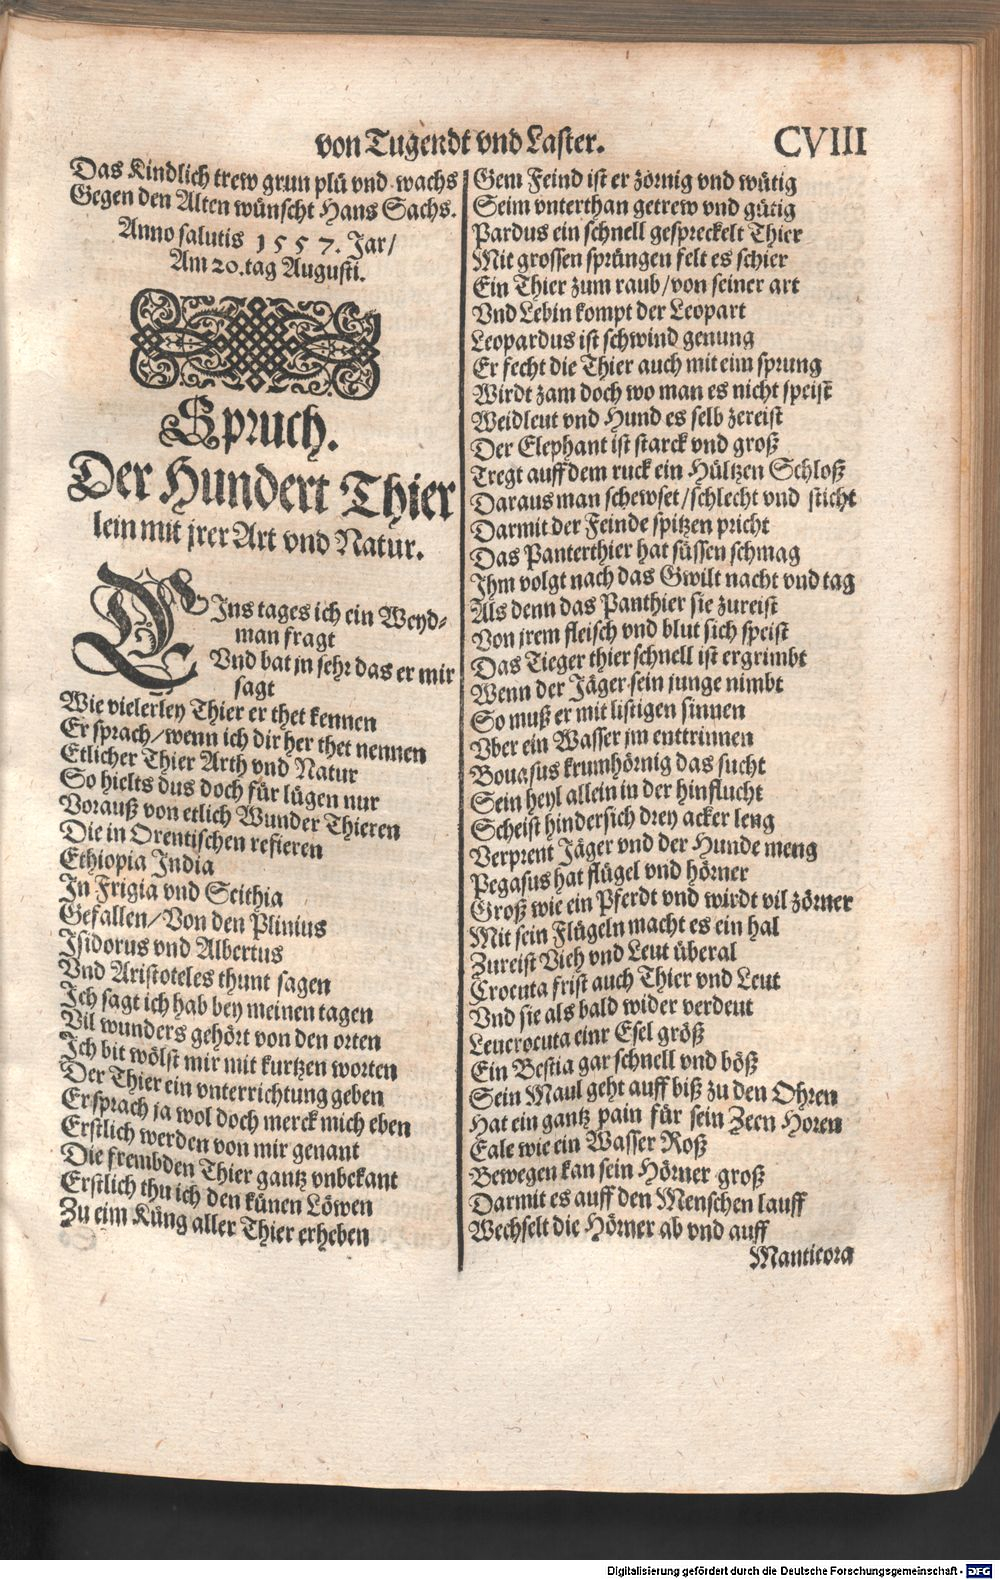 von Tugendt vnd Laster. CVIII
Das Kindlich trew grun plü vnd wachs
Gegen den Alten wünscht Hans Sachs.
Anno salutis 1557. Jar/
Am 20. tag Augusti.
Spruch.
Der Hundert Thier
lein mit jrer Art vnd Natur.
EIns tages ich ein Weyd-
man fragt
Vnd bat jn sehr das er mir
sagt
Wie vielerley Thier er thet kennen
Er sprach/wenn ich dir her thet nennen
Etlicher Thier Arth vnd Natur
So hielts dus doch für lügen nur
Vorauß von etlich Wunder Thieren
Die in Orentischen refieren
Ethiopia India
In Frigia vnd Scithia
Gefallen/Von den Plinius
Isidorus vnd Albertus
Vnd Aristoteles thunt sagen
Ich sagt ich hab bey meinen tagen
Vil wunders gehört von den orten
Ich bit wölst mir mit kurtzen worten
Der Thier ein vnterrichtung geben
Er sprach ja wol doch merck mich eben
Erstlich werden von mir genant
Die frembden Thier gantz vnbekant
Erstlich thu ich den künen Löwen
Zu eim Küng aller Thier erheben
Gem Feind ist er zörnig vnd wütig
Seim vnterthan getrew vnd gütig
Pardus ein schnell gespreckelt Thier
Mit grossen sprüngen felt es schier
Ein Thier zum raub/von seiner art
Vnd Lebin kompt der Leopart
Leopardus ist schwind genung
Er fecht die Thier auch mit eim sprung
Wirdt zam doch wo man es nicht speist
Weidleut vnd Hund es selb zereist
Der Elephant ist starck vnd groß
Tregt auff dem ruck ein Hültzen Schloß
Daraus man schewset/schlecht vnd sticht
Darmit der Feinde spitzen pricht
Das Panterthier hat süssen schmag
Ihm volgt nach das Gwilt nacht vnd tag
Als denn das Panthier sie zureist
Von jrem fleisch vnd blut sich speist
Das Tieger thier schnell ist ergrimbt
Wenn der Jäger sein junge nimbt
So muß er mit listigen sinnen
Vber ein Wasser jm enttrinnen
Bouasus krumhörnig das sucht
Sein heyl allein in der hinflucht
Scheist hindersich drey acker leng
Verprent Jäger vnd der Hunde meng
Pegasus hat flügel vnd hörner
Groß wie ein Pferdt vnd wirdt vil zörner
Mit sein Flügeln macht es ein hal
Zureist Vieh vnd Leut überal
Crocuta frist auch Thier vnd Leut
Vnd sie als bald wider verdeut
Leucrocuta einr Esel größ
Ein Bestia gar schnell vnd böß
Sein Maul geht auff biß zu den Ohren
Hat ein gantz pain für sein Zeen Horen
Eale wie ein Wasser Roß
Bewegen kan sein Hörner groß
Darmit es auff den Menschen lauff
Wechselt die Hörner ab vnd auff
Manticora
Digitalisierung gefördert durch die Deutsche Forschungsgemeinschaft - DFG